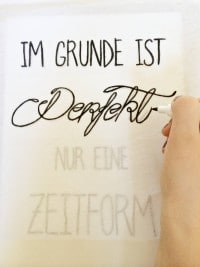 IM GRUNDE IST
Perfekt
NUR EINE
ZEITFORM